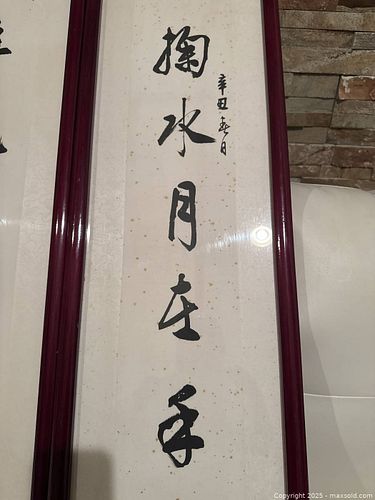 掬水月在手
辛丑春日
Copyright 2025 - maxsold.com